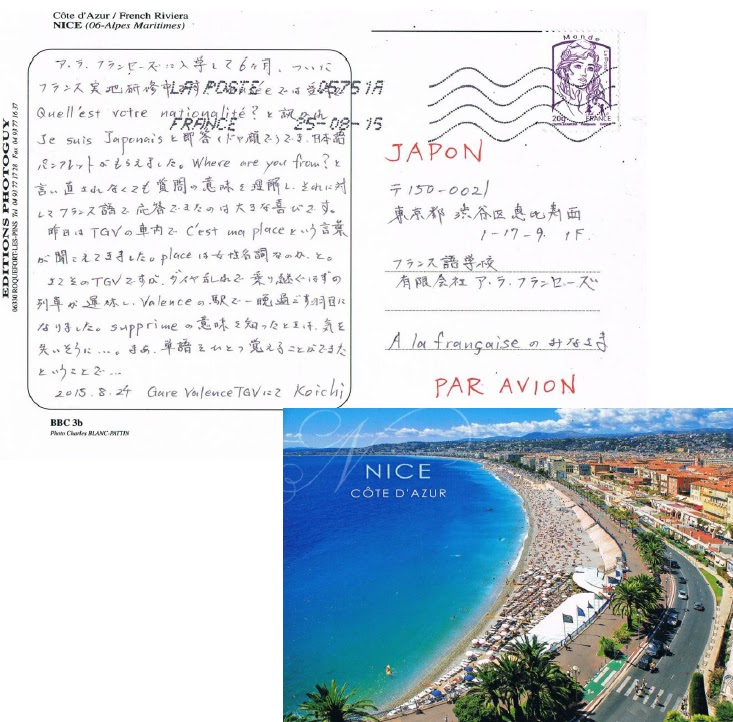 Côte d'Azur / French Riviera
NICE (06-Alpes Maritimes)
ア・ラ・フランセーズに入学して6ヶ月、ついに
フランス実地研修中です。
Quell'est votre nationalité? と訊かれ
Je suis Japonaisと即答(ドヤ顔で)でき、日本語
パンフレットがもらえました。Where are you from?と
言い直されなくても質問の意味を理解し、それに対
してフランス語で応答できたのは大きな喜びです。
昨日はTGVの車内でC'est ma placeという言葉
が聞こえてきました。placeは女性名詞なのか、と。
そのTGVですが、ダイヤ乱れで乗り継ぐはずの
列車が運休し、Valenceの駅で一晩過ごす羽目に
なりました。supprimeの意味を知ったときは、気を
失いそうに…。まあ、単語をひとつ覚えることができた
ということで…
2015.8.24 Gare Valence TGVにて Koichi
LA POSTE 06751A
FRANCE 25-08-15
EDITIONS PHOTOGUY
06330 ROQUEFORT-LES-PINS Tél 04 93 77 17 28 Fax 04 93 77 16 37
BBC 3b
Photo Charles BLANC-PATTIN
Monde
La Poste
20g FRANCE
JAPON
〒150-0021
東京都渋谷区恵比寿西
1-17-9. 1F.
フランス語学校
有限会社ア・ラ・フランセーズ
A la françaiseのみなさま
PAR AVION
NICE
CÔTE D'AZUR